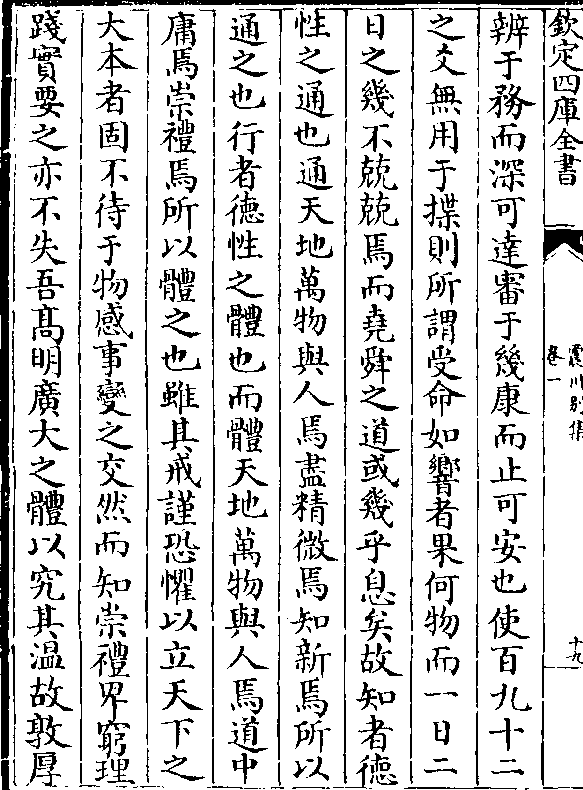 欽定四庫全書
震川别集
卷一
十九
辨于務而深可達審于幾康而止可安也使百九十二
之爻無用于揲則所謂受命如嚮者果何物而一日二
日之幾不兢兢焉而堯舜之道或幾乎息矣故知者德
性之通也通天地萬物與人焉盡精微焉知新焉所以
通之也行者德性之體也而體天地萬物與人焉道中
庸焉崇禮焉所以體之也雖其戒謹恐懼以立天下之
大本者固不待于物感事變之交然而知崇禮卑窮理
踐實要之亦不失吾髙明廣大之體以究其温故敦厚